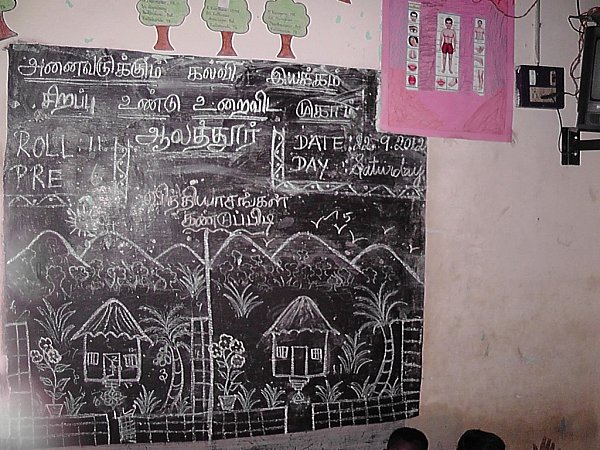 அனைவருக்கும் கல்வி இயக்கம்
சிறப்பு உண்டு உறைவிட முகாம்
ஆலத்தூர்
ROLL : 11
PRE :
DATE : 22.9.2012
DAY : Saturday
வித்தியாசங்கள்
கண்டுப்பிடி